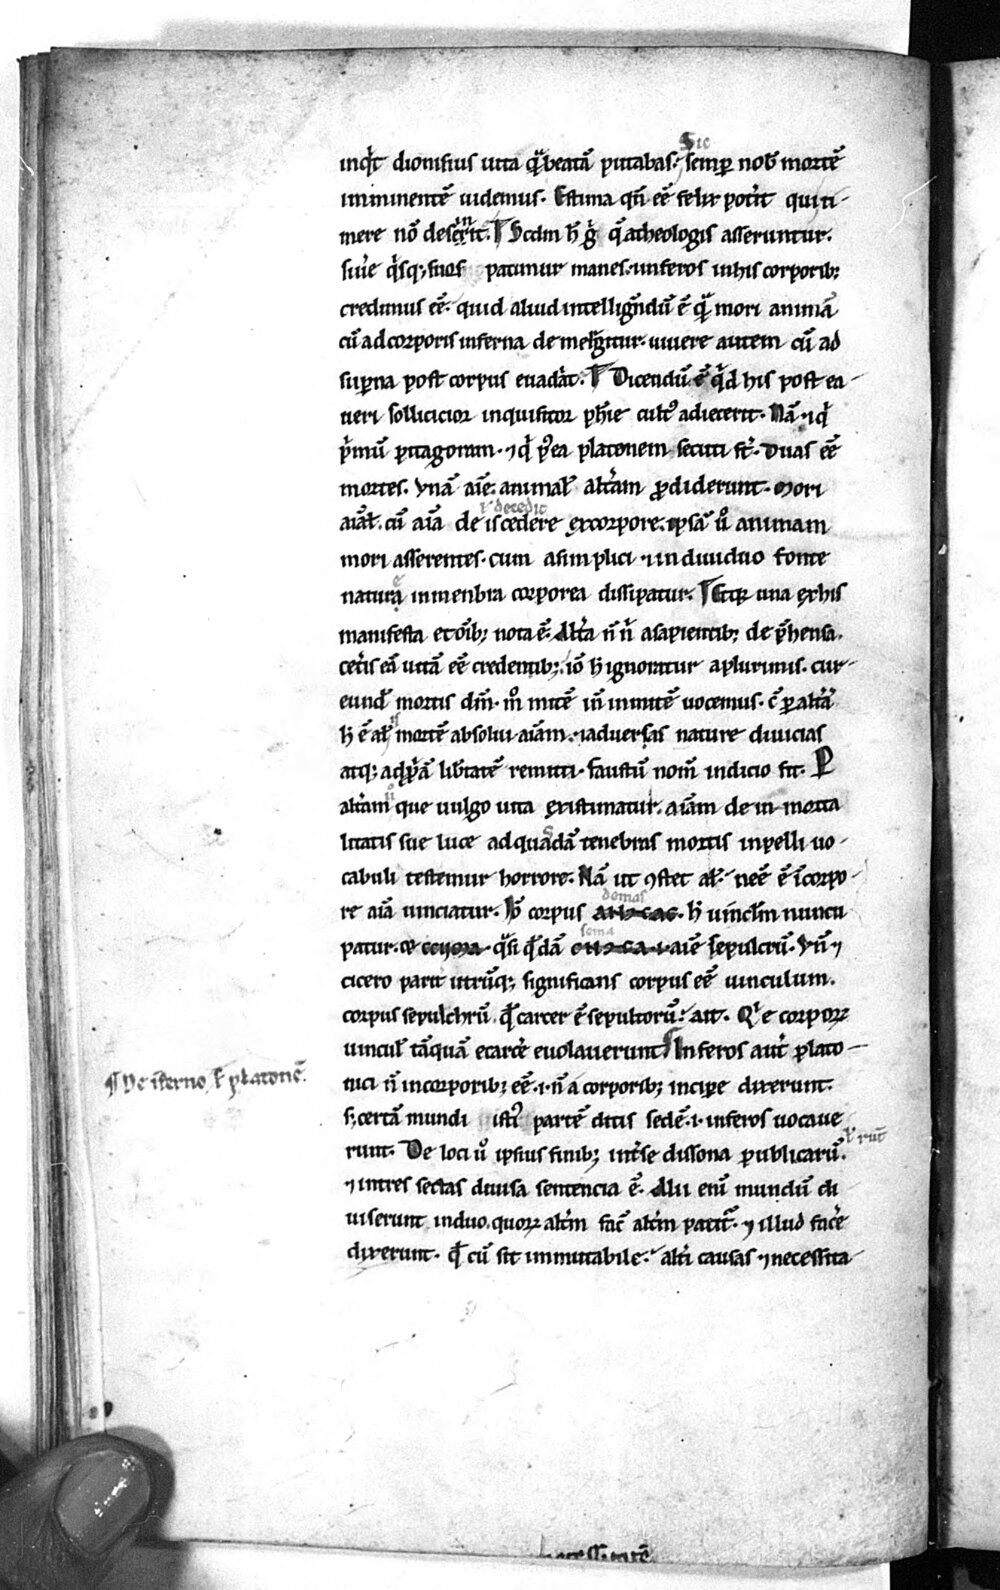 Sic
inq͛t dionisius uita q̄ beatā putabas. semꝑ nob̄ mortē
imminentē uidemus. Estima qn̄ eē felix pot͛it qui ti-
mere nō des͛erit. Scdm h̄ g͛ q̄ atheologis asseruntur.
siu͛e q͛sq; suos patimur manes. ⁊inferos inhis corporib;
credimus eē. quid aliud intelliḡndū ē q̄ mori animā
cū adcorporis inferna demergitur. uiuere autem cū ad
suꝑna post corpus euadat. Dicendū ē q̄d his post ea-
ueri sollicicior inquisitor ph̄ie cult᷒ adiecerit. Nā ⁊ q͛
p͛mū pitagoram. ⁊ q͛ p᷒ea platonem secuti st̄. Duas eē
mortes. Vnā aīe. animal̄ alt͛am ꝓdiderunt. Mori
ł decedit
aīal̄. cū aīa de is cedere ex corpore. ipsā u͛o animam
mori asserentes. cum asimplici ⁊indiuiduo fonte
natura inmenbra corporea dissipatur. Et q͛ una exhis
manifesta et oīb; nota ē. Alt͛a n̄ n͛ asapientib; dep̄hensa.
cet͛is eā uitā eē credentib;. iō h̄ ignoratur aplurimis. cur-
eund̄ mortis dm̄. m͛o mitē m͛ inmitē uocemus. c̄ ꝑ alt͛a
h̄ ē al̄is mortē absolui aīam. ⁊aduersas nature diuicias
atq; adꝓp̄ā lib͛tatē remitti. faustū nom̄ indicio fit. P
alt͛am u͛o que uulgo uita existimatur. aīam de in morta
litatis sue luce adquasdā tenebras mortis inpelli uo-
cabuli testemur horrore. Nā ut ꝯstet al̄. neē ē ī corpo-
domas
re aīa uinciatur. Iō corpus h̄ uinclm nuncu
sema
patur. q̄si q̄dā aīe sepulcrū. Vn̄ ⁊
cicero parit͛ utrūq; significans corpus eē uinculum.
corpus sepulchrū. q̄ carcer ē sepultorū. ait. Q͛i e corpoꝝ
uincul̄ tāquā ecarc͛e euolauerunt. Inferos aut̄ plato-
¶ De īferno s̄ platonē.
nici n̄ incorporib; eē .i. n̄ a corporib; incipe dixerunt.
s; certā mundi isti᷒ partē ditis sedē .i. inferos uocaue
ł rūt
runt. De loci u͛o ipsius finib; int͛se dissona publicarū.
⁊ intres sectas diuisa sentencia ē. Alii enī mundū di
uiserunt induo. quoꝝ alt͛m fac̄ alt͛m patit͛. ⁊ illud fac͛e
dixerunt. q̄ cū sit immutabile. alt͛i causas ⁊ necessita